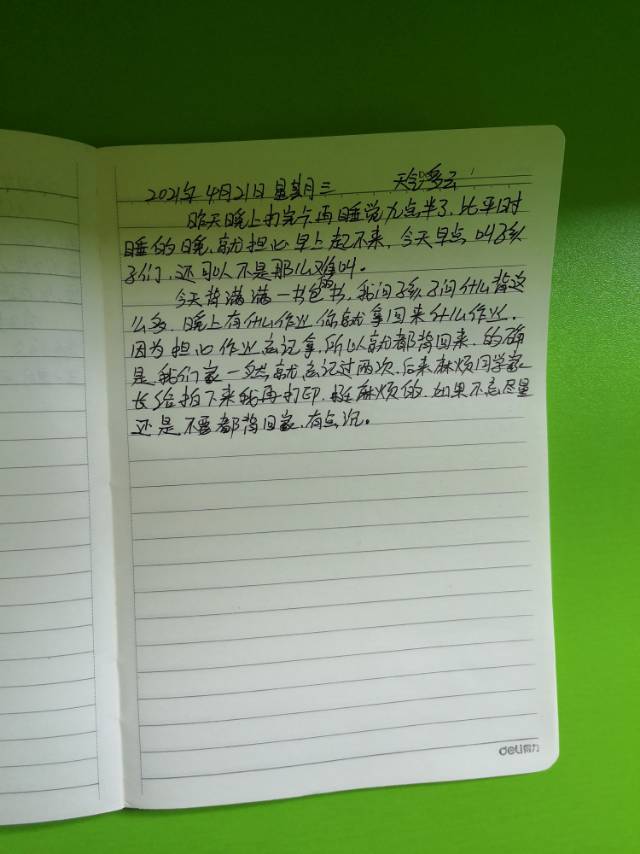 2021年4月21日 星期三 天气多云
昨天晚上打完卡再睡觉九点半了,比平时
睡的晚,就担心早上起不来,今天早点叫孩
子们,还可以不是那么难叫。
今天背满满一书包的书,我问孩子问什么背这
么多,晚上有什么作业你就拿回来什么作业,
因为担心作业忘记拿,所以就都背回来,的确
是,我们家一 就忘记过两次,后来麻烦同学家
长给拍下来我再打印,挺麻烦的,如果不忘尽量
还是不要都背回家,有点沉。
deli得力